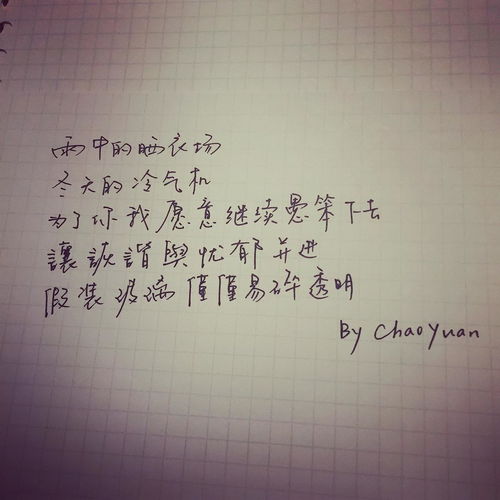 雨中的晒衣场
冬天的冷气机
为了你我愿意继续愚笨下去
讓詼諧與忧郁并进
假装玻璃僅僅易碎透明
By Chaoyuan